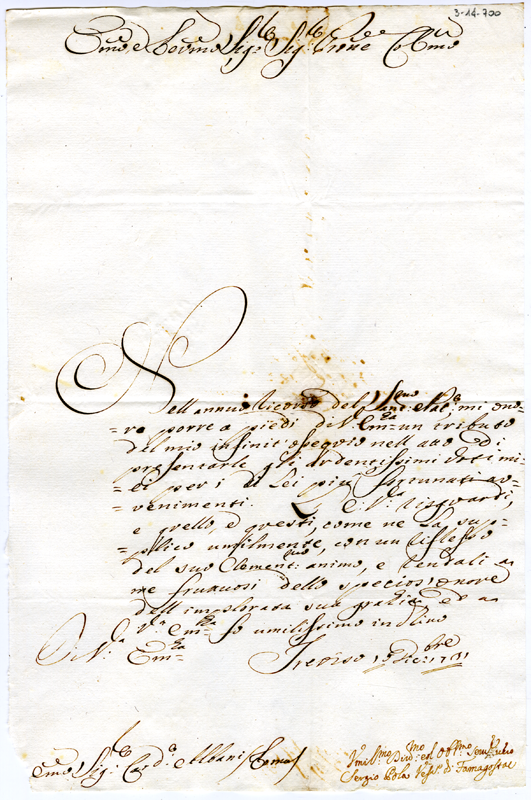 3-14-700
Emo e Revmo Sigr Sigr Prone Colmo
Nell annuo Ricorso del Santmo Nate mi ono=
=re porre a piedi di V. Em: un tributo
del mio infinit: ossequio nell atto di
presentarle gli ardentissimi Voti mi=
=ei per i di Lei più fortunati av=
=venimenti. E. Va riguardi,
e quello, e questi, come ne la sup=
=plico umilmente, con un riflesso
del suo Clementmo animo, e rendali a
me fruttuosi dello specioso onore
dell implorata sua grazia ed a
Va Emza fo umilissimo inchino
Di Va Emza Treviso 19 Xbre 1731
Emo Sigr Card Albani Roma
Umilmo Divmo ed Obbmo Servre
Sergio Pola Vesco di Famagosta